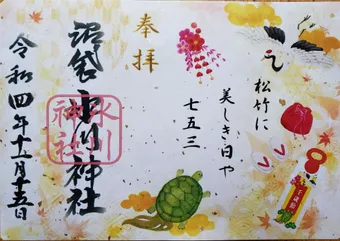 奉拝
松竹に
美しき日や
七五三
沼袋氷川神社
氷川
神社
令和四年十一月十五日